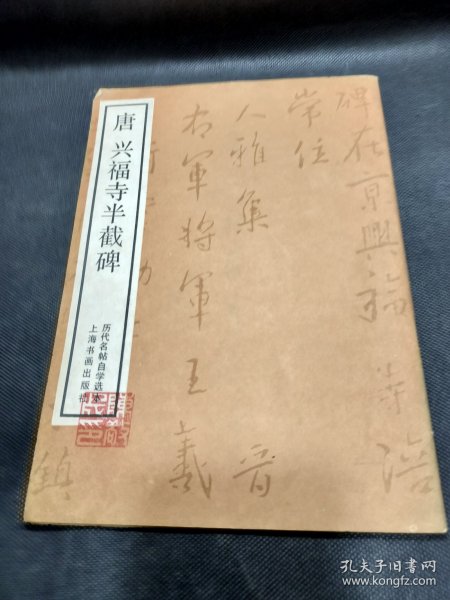 唐 兴福寺半截碑
历代名帖自学选本
上海书画出版社
碑在京興福寺陪
常住
人雅集
晋
右軍將軍王羲
鎮
孔夫子旧书网
www.kongfz.com